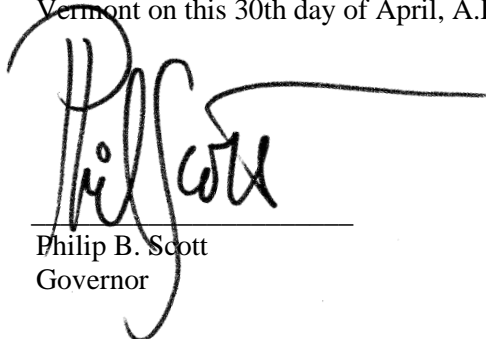 Vermont on this 30th day of April, A.
Phil Scott
Philip B. Scott
Governor